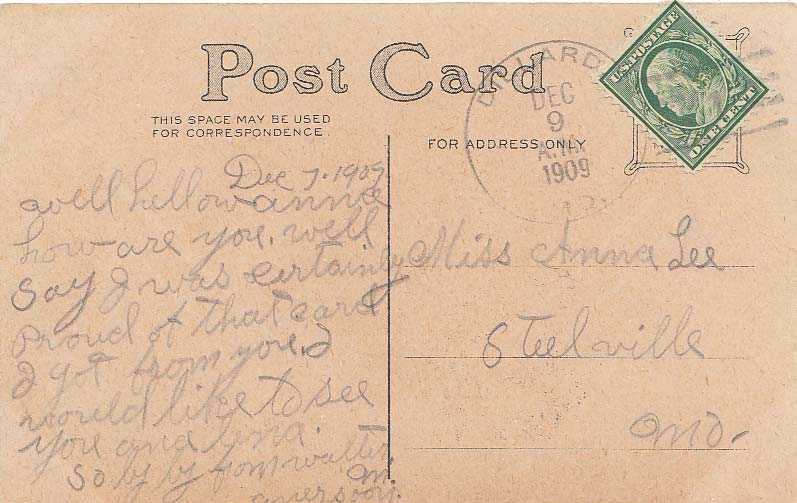 Post Card
THIS SPACE MAY BE USED
FOR CORRESPONDENCE.
FOR ADDRESS ONLY
DEC
9
A.M.
1909
U.S. POSTAGE
ONE CENT
Dec 7. 1909
well hellow anna
how are you. well
Say I was certainly
Proud of that card
I got from you. I
would like to see
you and
So by by from walter
M.
Miss Anna Lee
Steelville
Mo.